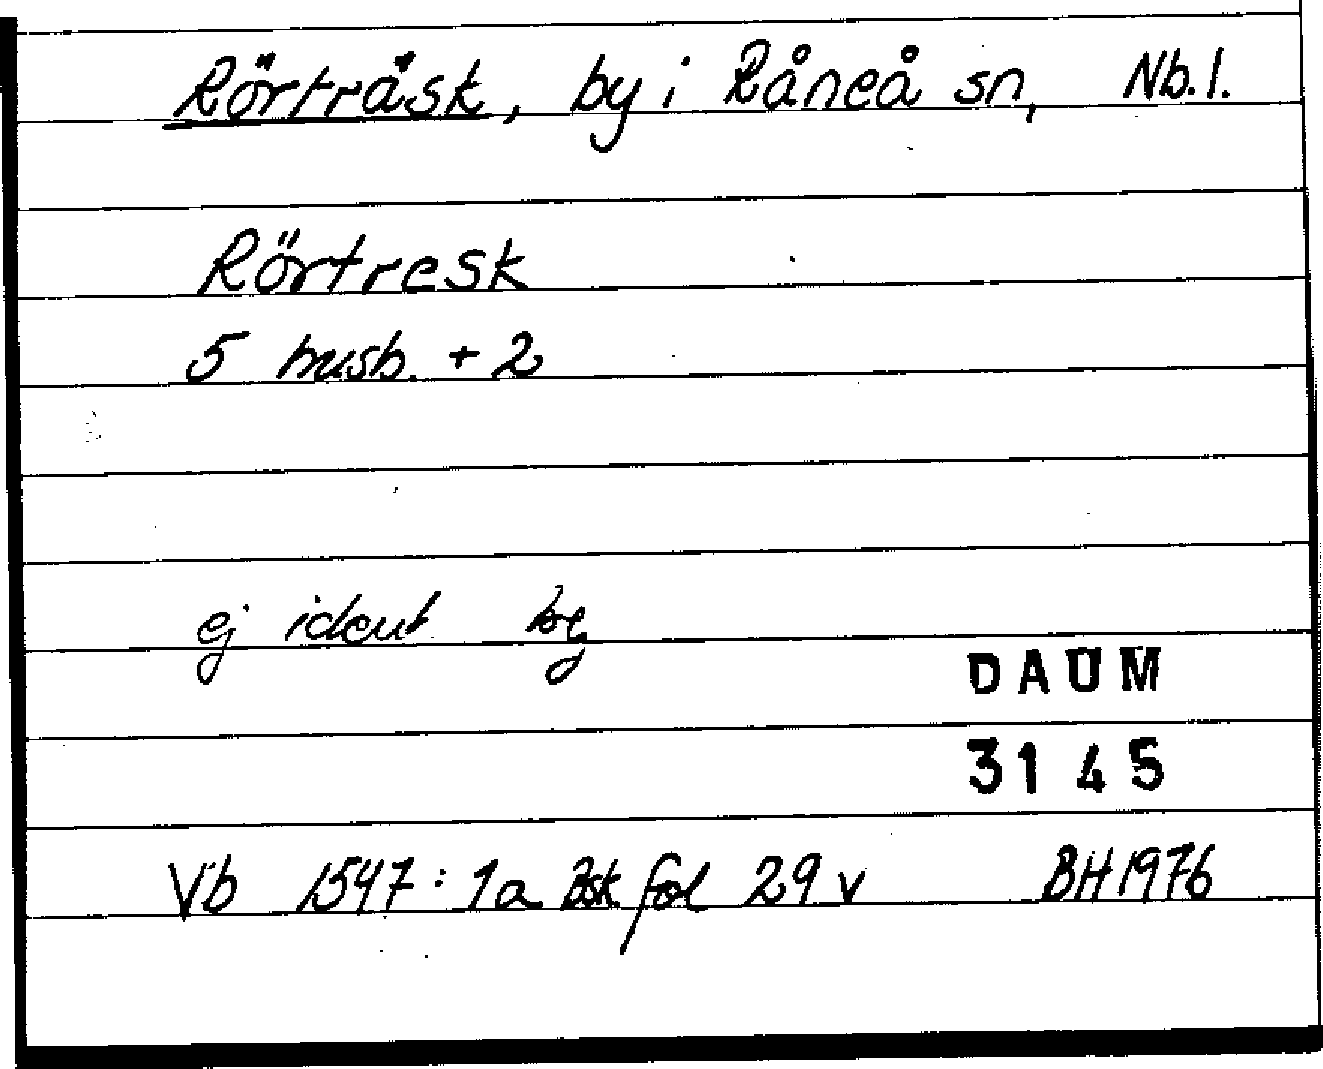 Rörträsk, by i Råneå sn, Nb.l.
Rörtresk
5 husb. + 2
ej ident by
DAUM
3145
Vb 1547: 1a Bsk fol 29 v BH 1976